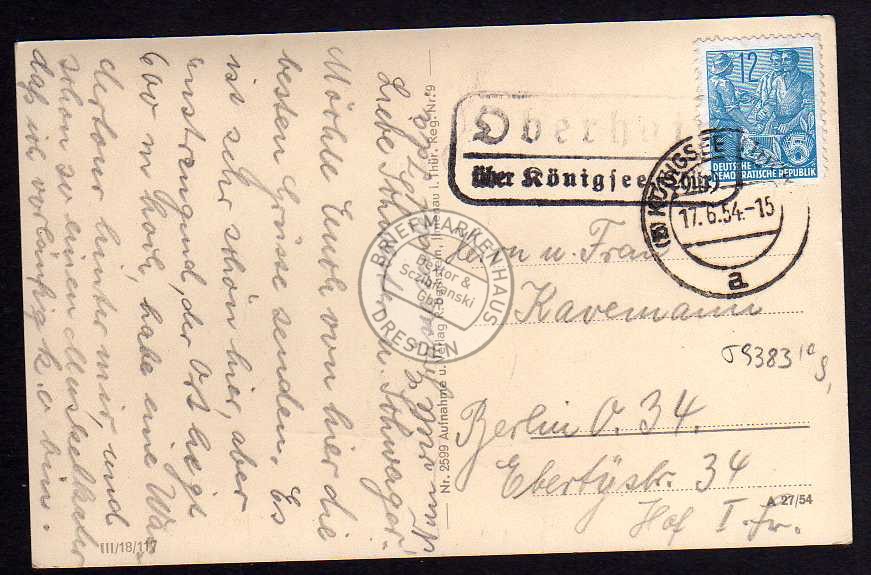 Liebe Schwester u. Schwager!
Möchte Euch von hier die
besten Grüsse senden. Es
ist sehr schön hier, aber
anstrengend, der Ort liegt
600 m hoch, habe eine Wan
dertour hinter mir, und
schon so einen Muskelkater
daß ich vorläufig k.o bin.
Nr. 2599 Aufnahme u. Verlag R. Ilmenau i. Thür. Reg.-Nr. 9
III/18/117
Oberhain
über Königsee
12
DEUTSCHE
DEMOKRATISCHE REPUBLIK
5
KÖNIGSEE
(Thür)
17.6.54.-15
a
Herrn u. Frau
Kavemann
Berlin O. 34.
Ebertystr. 34
Hof I. Tr.
A 27/54
BRIEFMARKENHAUS
Bextor &
Sczibilanski
GbR
DRESDEN